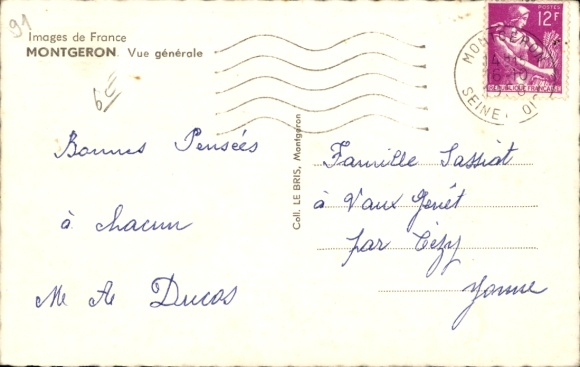 91
Images de France
MONTGERON. Vue générale
6€
Bonnes Pensées
à chacun
M Me Ducos
Coll. LE BRIS, Montgeron
POSTES
12F
REPUBLIQUE FRANÇAISE
MONTGERON
SEINE
Famille Sassiat
à Vaux Genêt
par Cézy
Yonne